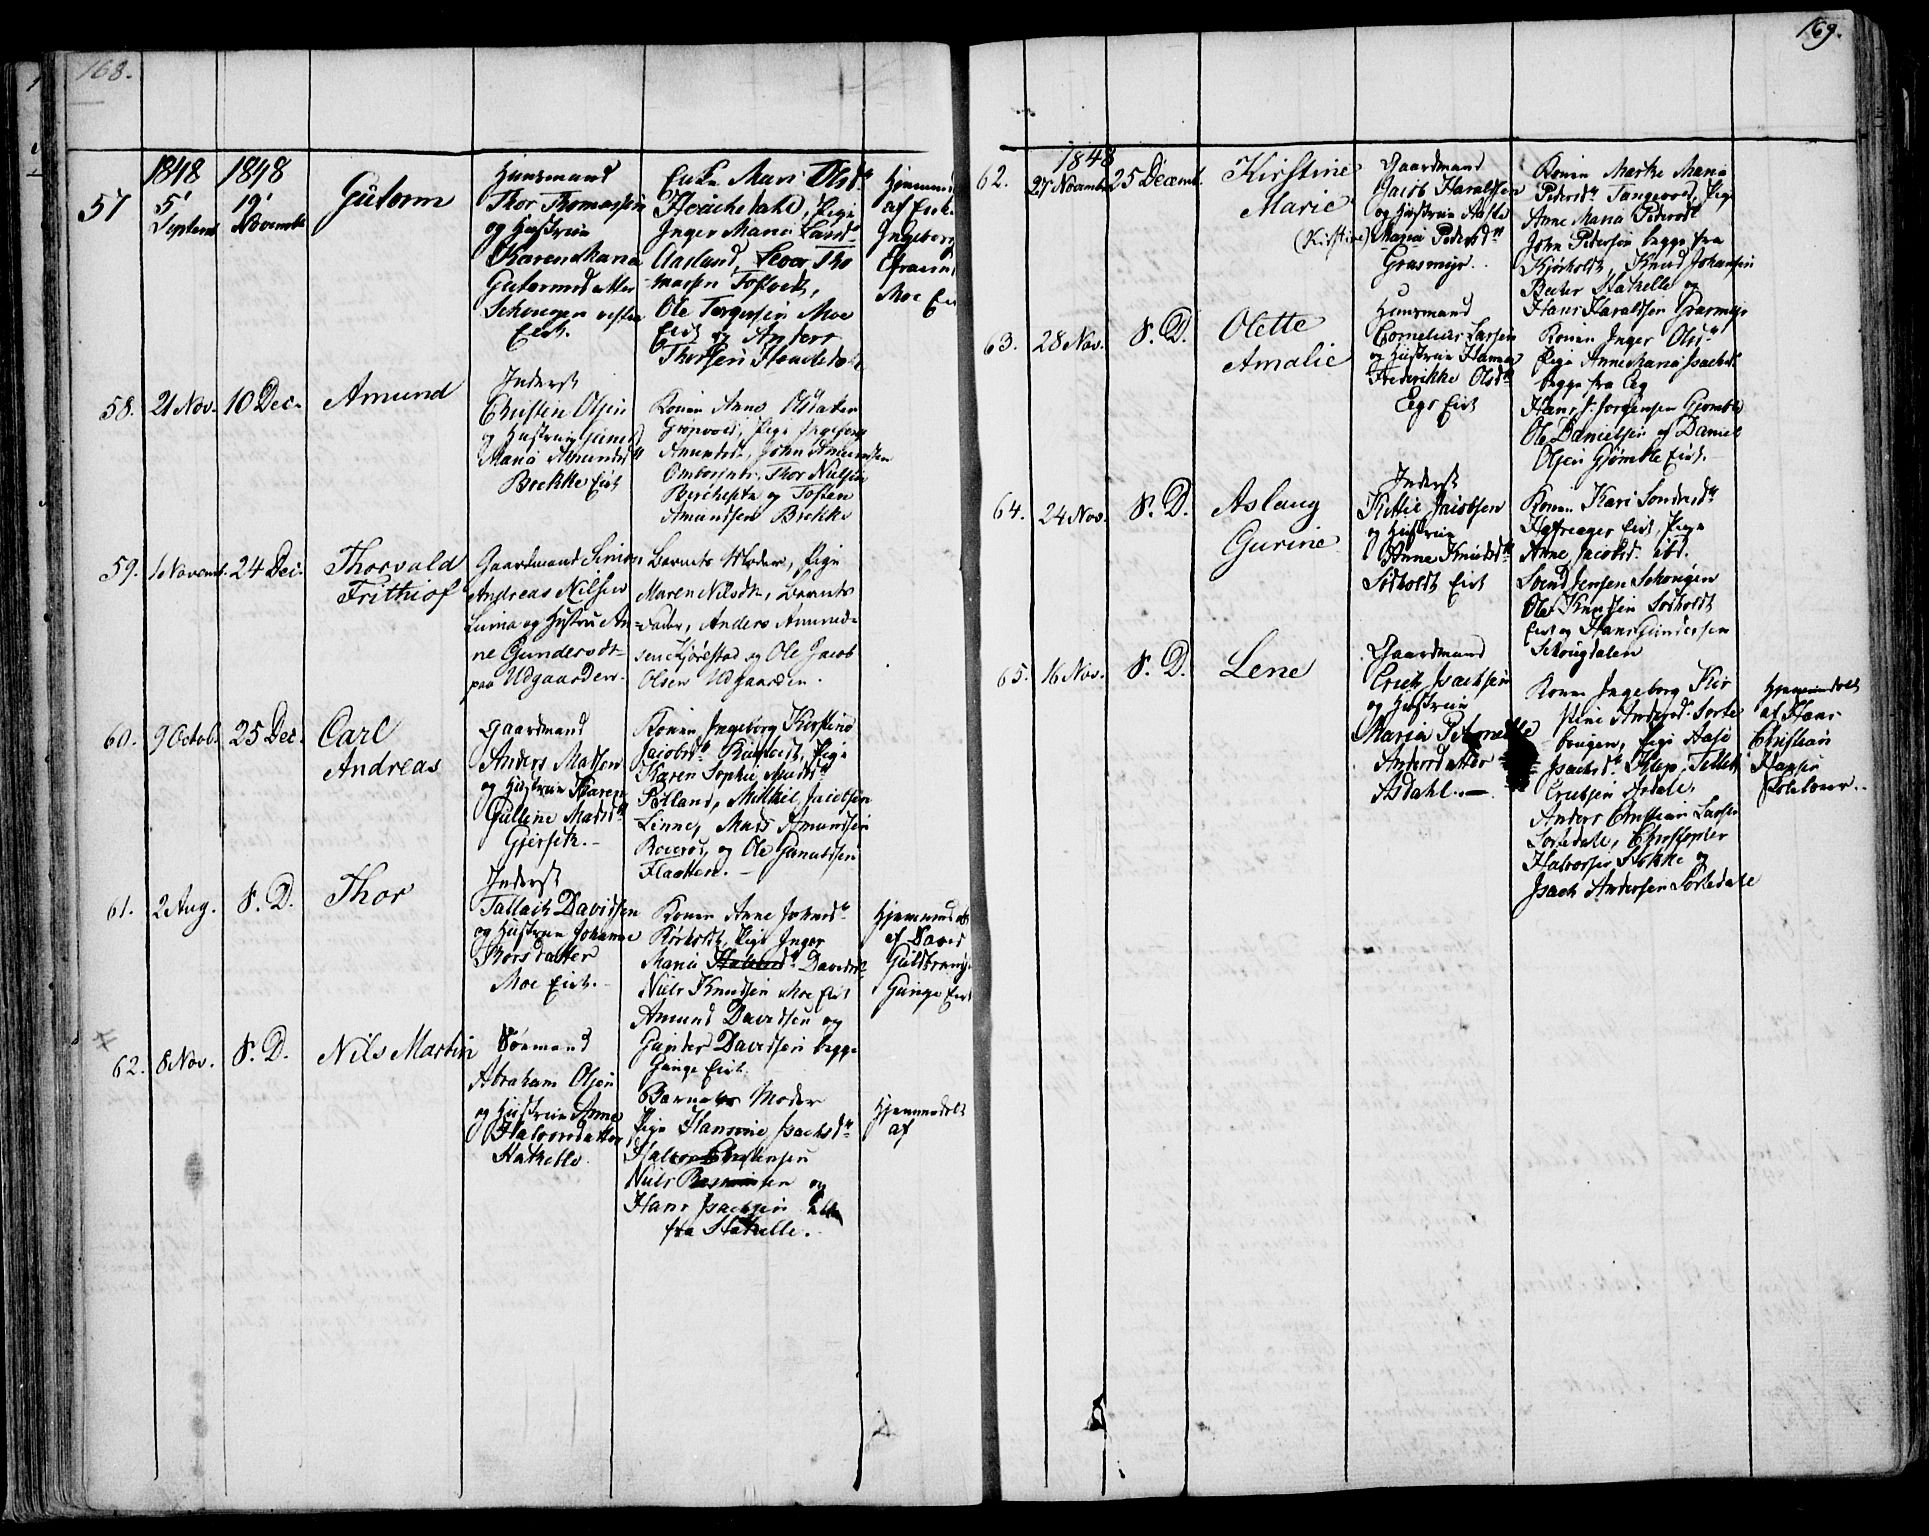 168.
1848 1848
57
5' Septemb
19' Novembr
Gutorm
Huusmand
Thor Thomassen
og Hustrue
Karen Maria
Gutormsdatter
Schougen vestre
Eiet.
Enke Mari Olsdr
Houkedahl, Pige
Inger Maria Larsdr
Aaslund, Lars Tho
massen Tostvedt,
Ole Torgersen Moe
Eiet og Anders
Thorsen Houkedahl
Hjemmed.
af Enke
Ingeborg
Moe Ei
58. 21 Nov. 10 Dec.
Amund
Inderst
Christen Olsen
og Hustrue Gunild
Maria Amundsdr
Brekke Eiet
Konen Anne Olsdatter
Grønvold, Pige Ingeborg
Amundsd., John Amundsen
Omborsnes, Thor Nielsen
Amundsen Brekke
59. 1 Novemb. 24 Dec.
Thorvald
Frithiof
Gaardmand Simon
Andreas Nilsen
Luma og Hustru An-
ne Gundersdtr
paa Udgaarden.
Barnets Moder, Pige
Maren Nilsdtr, Barnets
Fader, Anders Amund-
sen Kjørestad og Ole Jacob
Olsen Udgaarden.
60. 9 Octob. 25 Dec.
Carl
Andreas
Gaardmand
Anders Madsen
og Hustrue Karen
Gulline Madsdr
Gjersek.
Konen Ingeborg Kirstine
Jacobsdr, Pige
Karen Sophie Madsdr
Mikkel Jacobsen
Linne, Mads Amundsen
og Ole Gunuldsen
Flaatten.
61. 2 Aug. S. D.
Thor
Inderst
Tallach Davidsen
og Hustrue Johanne
Thorsdatter
Moe Eiet.
Konen Anne Johnsdr
Kørholdt, Pige Inger
Maria Davidsd.
Niels Knudsen Moe Eiet
Amund Davidsen og
Gunder Davidsen begge
Gunge Eiet.
Hjemmedøbt
af David
Guldbrands.
Gunge Eiet
62. 8 Nov. S. D.
Nils Martin
Sømand
Abraham Olsen
og Hustrue Anne
Halvorsdatter
Stathelle.
Barnets Moder
Pige Hansine Isachsdr
Halvor Christensen
Niels Rasmussen og
Hans Isachsen alle
fra Stathelle.
Hjemmedøbt
af
169.
1848
62. 27 Novembr 25 Decemb.
Kirstine
Marie
(Kirstine)
Gaardmand
Jacob Haraldsen
og Hustrue Aaste
Maria Pedersdr
Grasmyr.
Konen Marthe Maria
Pedersdr Tangevold, Pige
Anne Maria Pedersdr
John Pedersen begge fra
Kjørholdt, Knud Johansen
Beeter Stathelle og
Hans Haraldsen Grasmyr
63. 28 Nov. S. D.
Olette
Amalie
Huusmand
Cornelius Larsen
og Hustrue Hanna
Frederikke Olsdr
Eegs Eiet
Konen Inger Olsdr
Pige Anne Maria Isachsd.
begge fra Eeg
Hans J. Jørgensen Gjømle
Ole Danielsen af Daniel
Olsen Gjømle Eiet.
64. 24 Nov. S. D.
Aslaug
Gurine
Inderst
Kittil Jacobsen
og Hustrue
Anne Knudsdr
Sødholdt Eiet
Konen Kari Sondresdr
Hafsrager Eiet, Pige
Anne Jacobsd. ibd.
Svend Jensen Schougen
Ole Knudsen Sødholdt
Eiet og Hans Gundersen
Schougdalen
65. 16 Nov. S. D.
Lene
Gaardmand
Erich Isachsen
og Hustrue
Maria Petronelle
Andersdatter
Asdahl.
Konen Ingeborg Kir
stine Andersd. Sorte
brugen, Pige Aase
Isachsdr Skjep, Tellef
Erichsen Asdale,
Anders Christian Larsen
Sortedale, Christopher
Halvorsen Stokke og
Isach Andersen Sortedale
Hjemmedøbt
af Hans
Christian
Hansen